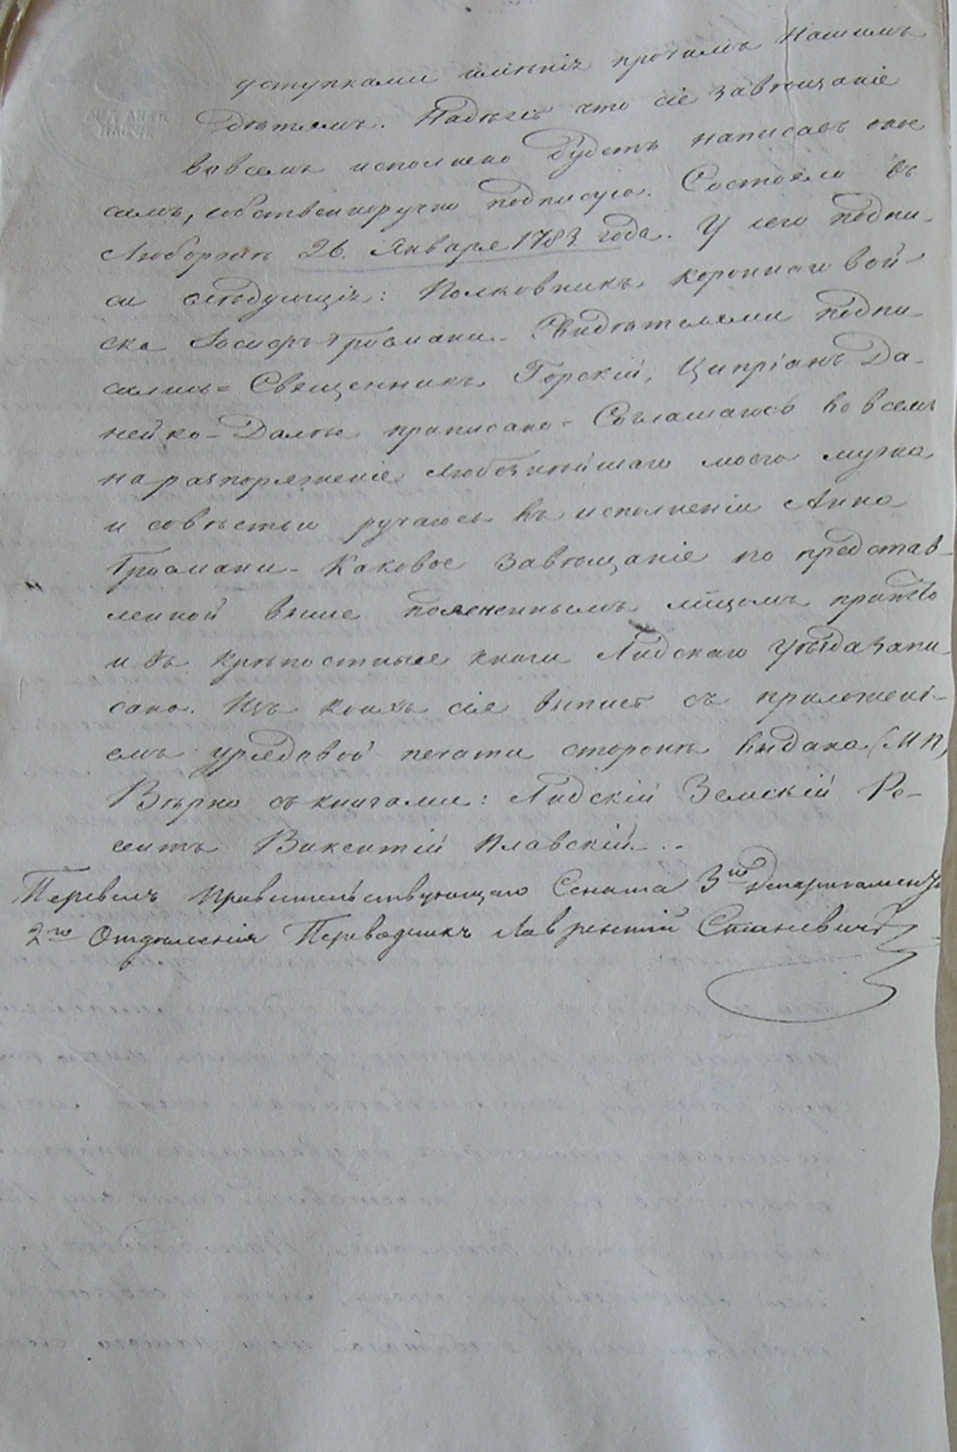 уступками имѣнія протимъ нашимъ
дѣтямъ. Надѣясь что сіе завѣщаніе
во всемъ исполнено будетъ написавъ оное
самъ, собственноручно подписую. Состояло въ
26. Января 1783 года. У сего подпи-
си слѣдующія: Полковникъ короннаго вой-
ска Іосифъ Громани. Свидѣтелями подпи-
сались = Священникъ Горскій, Ципріанъ Да-
нейко - Далѣе приписано - Соглашаюсь во всемъ
на разпоряженіе любезнѣйшаго моего мужа
и совѣстью ручаюсь въ исполненіи Анна
Громани - Каковое завѣщаніе по представ-
ленной выше лицомъ принято
и въ крѣпостные книги Лидскаго уѣзда запи
сано. Изъ коихъ сія выпись съ приложені-
емъ урядовой печати сторонѣ выдана (М П)
Вѣрно съ книгами: Лидскій Земскій Ре-
гентъ Викентій Плавскій -..
Перевелъ Правительствующаго Сената 3го Департамента
2го Отдѣленія Переводчикъ Лаврентій Станевичъ